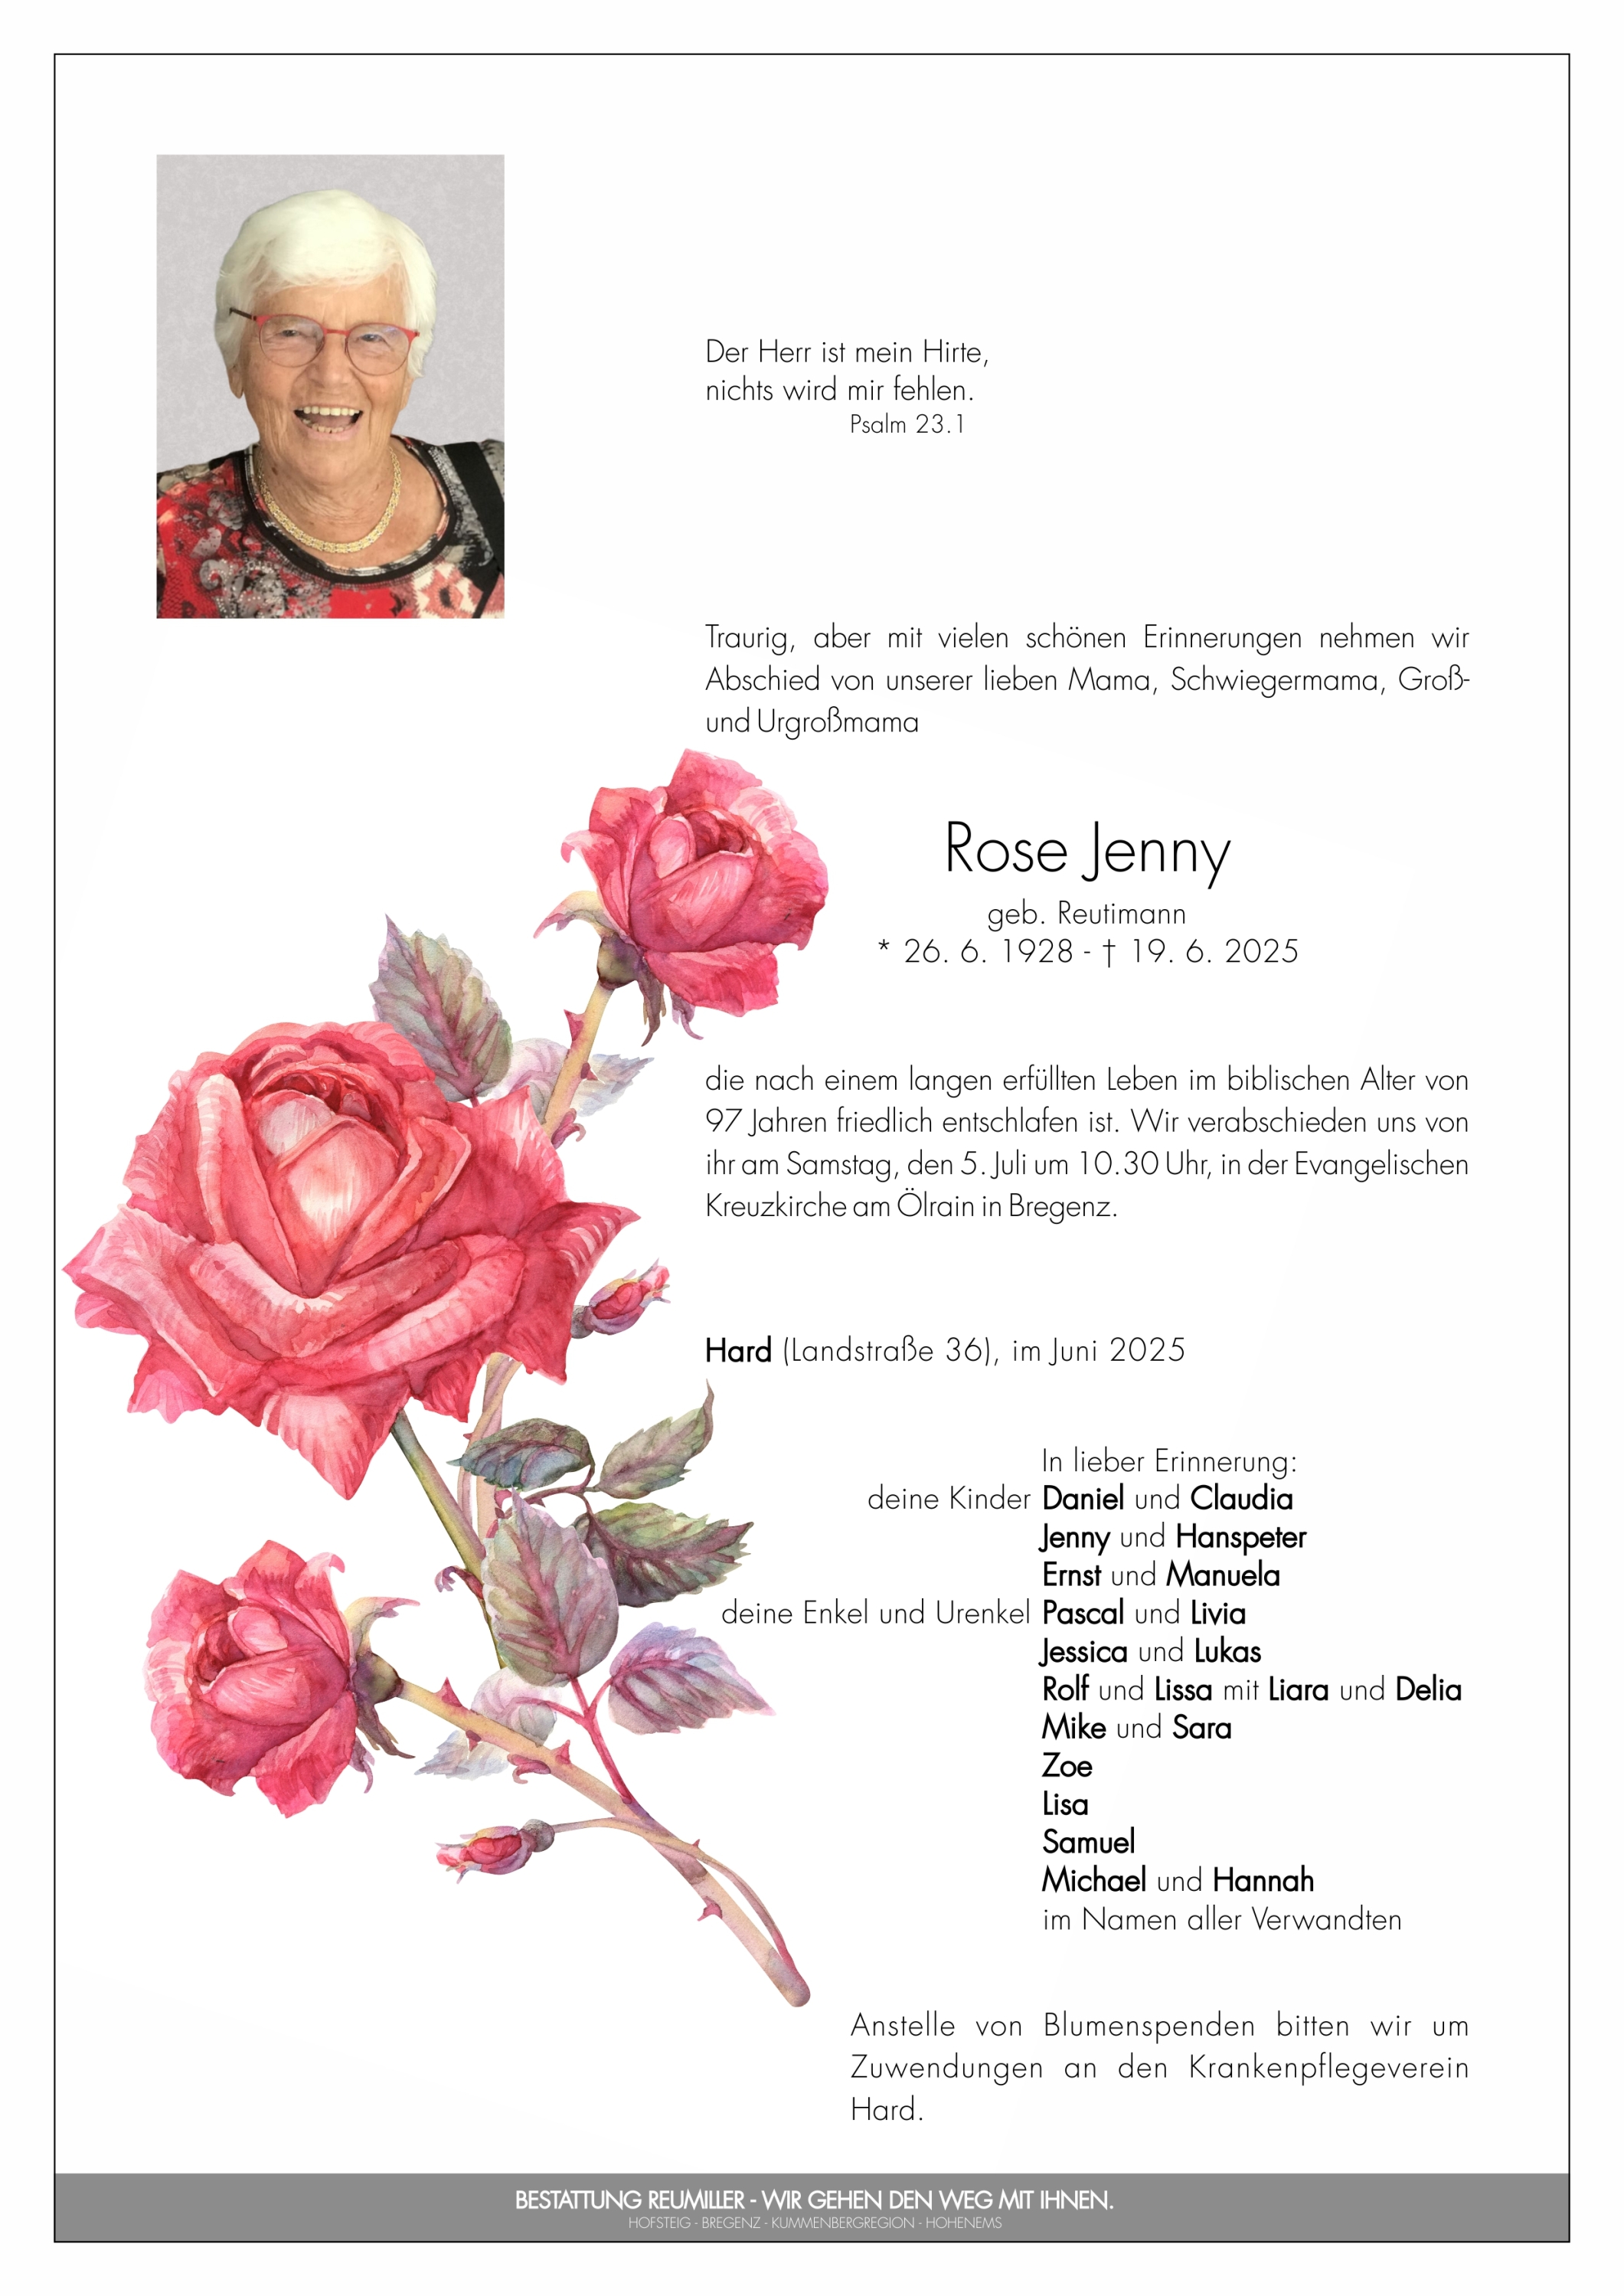 Der Herr ist mein Hirte,
nichts wird mir fehlen.
Psalm 23.1
Traurig, aber mit vielen schönen Erinnerungen nehmen wir
Abschied von unserer lieben Mama, Schwiegermama, Groß-
und Urgroßmama
Rose Jenny
geb. Reutimann
* 26. 6. 1928 - † 19. 6. 2025
die nach einem langen erfüllten Leben im biblischen Alter von
97 Jahren friedlich entschlafen ist. Wir verabschieden uns von
ihr am Samstag, den 5. Juli um 10.30 Uhr, in der Evangelischen
Kreuzkirche am Ölrain in Bregenz.
Hard (Landstraße 36), im Juni 2025
In lieber Erinnerung:
deine Kinder Daniel und Claudia
Jenny und Hanspeter
Ernst und Manuela
deine Enkel und Urenkel Pascal und Livia
Jessica und Lukas
Rolf und Lissa mit Liara und Delia
Mike und Sara
Zoe
Lisa
Samuel
Michael und Hannah
im Namen aller Verwandten
Anstelle von Blumenspenden bitten wir um
Zuwendungen an den Krankenpflegeverein
Hard.
BESTATTUNG REUMILLER - WIR GEHEN DEN WEG MIT IHNEN.
HOFSTEIG - BREGENZ - KUMMENBERGREGION - HOHENEMS